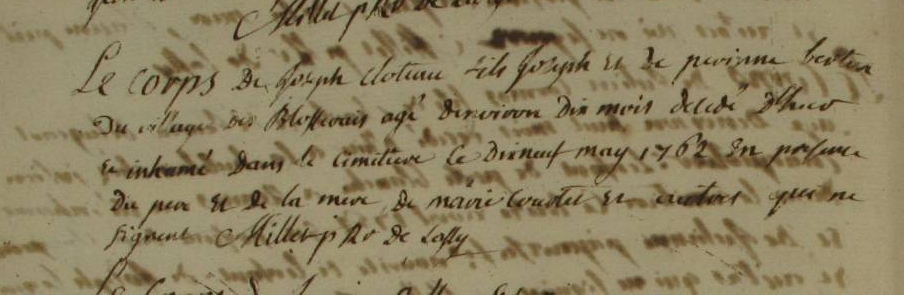 Millet p
Le corps De Joseph Cloteau fils Joseph et de perinne
Du vilage des Blosserais agé denviron Dix mois décédé D'hier
et inhumé Dans le cimitiere le Dixneuf may 1762 En presence
Du pere et de la mere de marie et autres qui ne
signent Millet p De Lassy
Le Corps